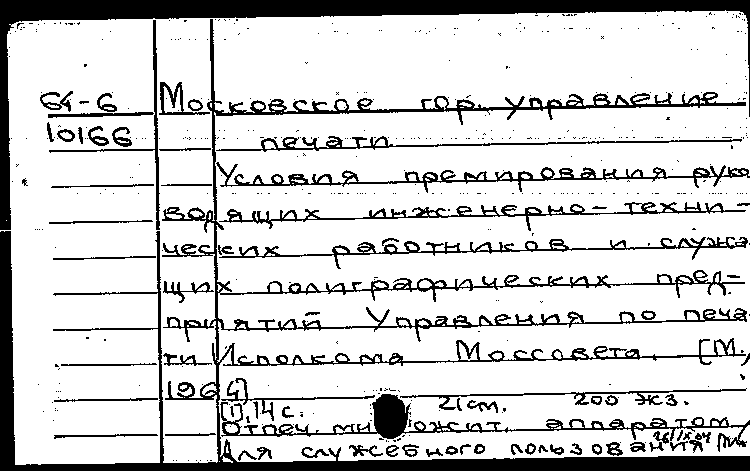 64-6 Московское гор. управление
10166 печати
Условия премирования руко
водящих инженерно-техни-
ческих работников и служа
щих полиграфических пред-
приятий Управления по печа
ти Исполкома Моссовета. [М.,
1964]
[1], 14 с. 21 см. 200 экз.
Отпеч. множит. аппаратом
Для служебного пользования